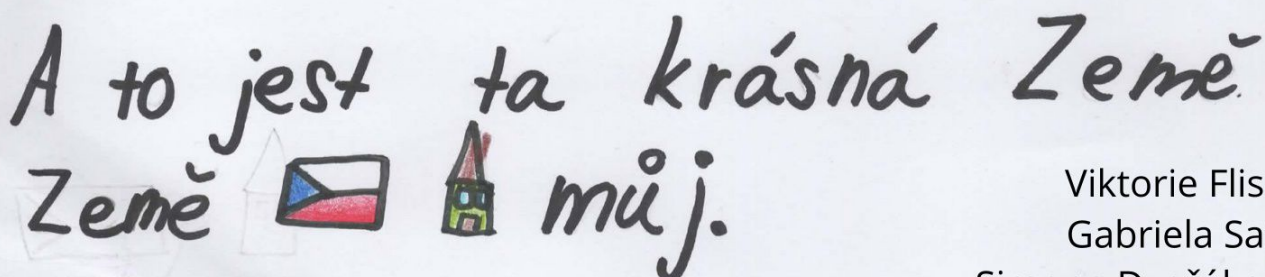 A to jest ta krásná Země
Země můj.
Viktorie Flis
Gabriela Sa